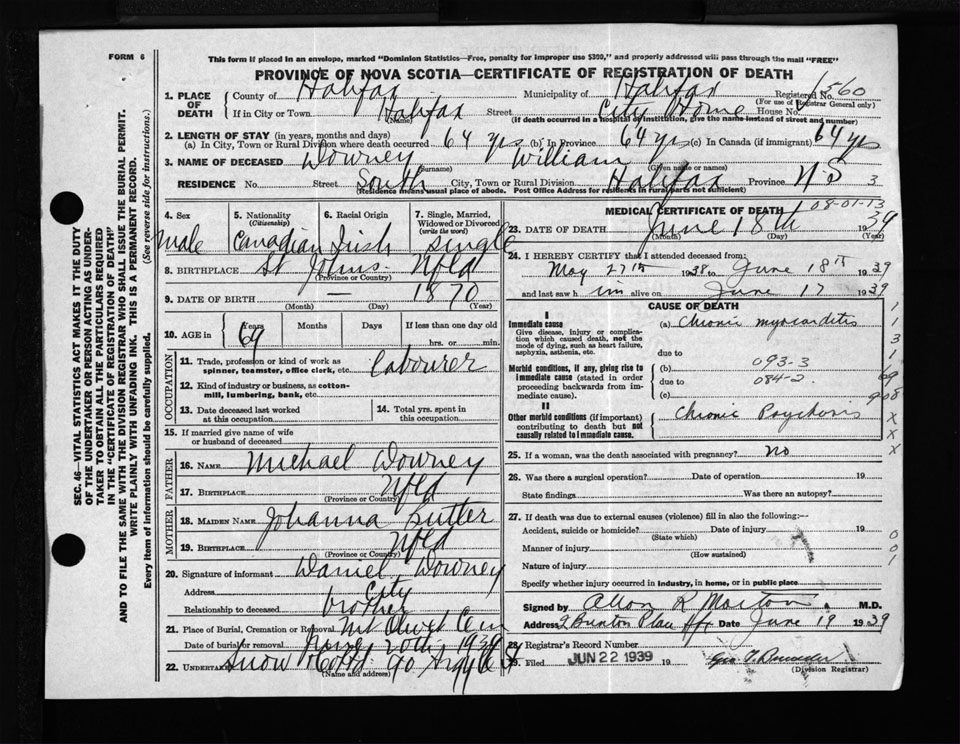 FORM 6
This form if placed in an envelope, marked "Dominion Statistics—Free, penalty for improper use $300," and properly addressed will pass through the mail "FREE"
PROVINCE OF NOVA SCOTIA—CERTIFICATE OF REGISTRATION OF DEATH
1. PLACE OF DEATH
County of Halifax Municipality of Halifax Registered No. 1560
(For use of Registrar General only)
If in City or Town Halifax Street City Home House No.
(Name) (If death occurred in a hospital or institution, give the name instead of street and number)
2. LENGTH OF STAY (in years, months and days)
(a) In City, Town or Rural Division where death occurred 64 yrs (b) In Province 64 yrs (c) In Canada (if immigrant) 64 yrs
3. NAME OF DECEASED Downey William
(Surname) (Given name or names)
RESIDENCE No. Street South City, Town or Rural Division Halifax Province N S 3
(Residence means usual place of abode. Post Office Address for residents in rural parts not sufficient)
4. Sex
male
5. Nationality (Citizenship)
Canadian
6. Racial Origin
Irish
7. Single, Married, Widowed or Divorced (write the word)
single
8. BIRTHPLACE St Johns Nfld
(Province or Country)
9. DATE OF BIRTH — 1870
(Month) (Day) (Year)
10. AGE in 69 Years Months Days If less than one day old
hrs. or min.
OCCUPATION
11. Trade, profession or kind of work as spinner, teamster, office clerk, etc. Labourer
12. Kind of industry or business, as cotton-mill, lumbering, bank, etc.
13. Date deceased last worked at this occupation
14. Total yrs. spent in this occupation
15. If married give name of wife or husband of deceased
FATHER
16. NAME Michael Downey
17. BIRTHPLACE Nfld
(Province or Country)
MOTHER
18. MAIDEN NAME Johanna Butler
19. BIRTHPLACE Nfld
(Province or Country)
20. Signature of informant Daniel Downey
Address City
Relationship to deceased brother
21. Place of Burial, Cremation or Removal Mt Olivet Cem
Date of burial or removal June 20th 1939
22. UNDERTAKER Snow 90 Argyle St
(Name and address)
MEDICAL CERTIFICATE OF DEATH
08-01-73
23. DATE OF DEATH June 18th 1939
(Month) (Day) (Year)
24. I HEREBY CERTIFY that I attended deceased from:
May 27th 1938 to June 18th 1939
and last saw him alive on June 17 1939
CAUSE OF DEATH
I
Immediate cause
Give disease, injury or complication which caused death, not the mode of dying, such as heart failure, asphyxia, asthenia, etc.
(a) Chronic myocarditis
due to
Morbid conditions, if any, giving rise to immediate cause (stated in order proceeding backwards from immediate cause).
(b) 093-3
due to 084-2
(c)
II
Other morbid conditions (if important) contributing to death but not causally related to immediate cause.
Chronic Psychosis
1
1
3
1
X
X
X
25. If a woman, was the death associated with pregnancy? no
26. Was there a surgical operation? Date of operation 19
State findings Was there an autopsy?
27. If death was due to external causes (violence) fill in also the following:—
Accident, suicide or homicide? Date of injury 19
(State which)
Manner of injury
(How sustained)
Nature of injury
Specify whether injury occurred in industry, in home, or in public place
0
0
1
Signed by Allan R Morton M.D.
Address Date June 19 1939
28. Registrar's Record Number
29. Filed JUN 22 1939 19
(Division Registrar)
SEC. 46—VITAL STATISTICS ACT MAKES IT THE DUTY
OF THE UNDERTAKER OR PERSON ACTING AS UNDER-
TAKER TO OBTAIN ALL THE PARTICULARS REQUIRED
IN THE "CERTIFICATE OF REGISTRATION OF DEATH"
AND TO FILE THE SAME WITH THE DIVISION REGISTRAR WHO SHALL ISSUE THE BURIAL PERMIT.
WRITE PLAINLY WITH UNFADING INK. THIS IS A PERMANENT RECORD.
Every item of information should be carefully supplied. (See reverse side for instructions.)